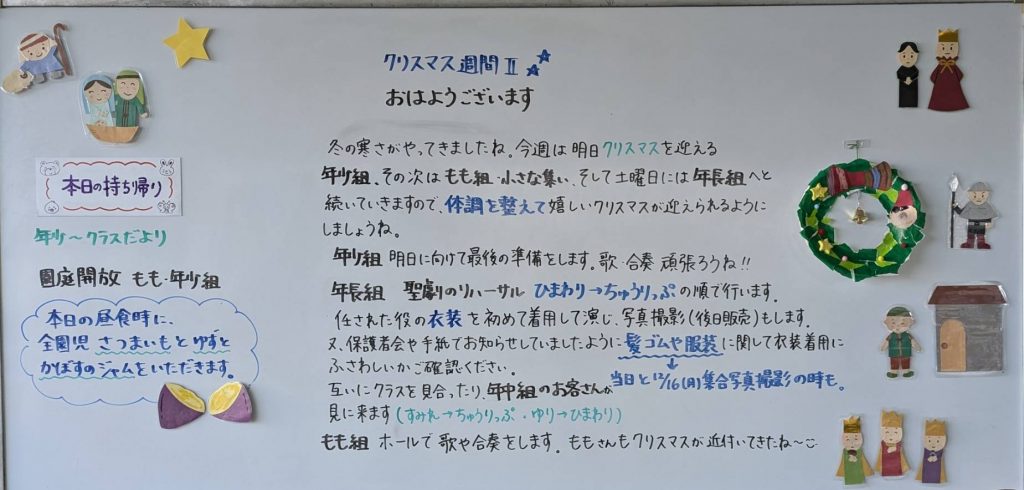 クリスマス週間Ⅱ
おはようございます
冬の寒さがやってきましたね。今週は明日クリスマスを迎える
年少組、その次はもも組・小さな集い、そして土曜日には年長組へと
続いていきますので、体調を整えて嬉しいクリスマスが迎えられるように
しましょうね。
年少組 明日に向けて最後の準備をします。歌・合奏 頑張ろうね!!
年長組 聖劇のリハーサル ひまわり→ちゅうりっぷの順で行います。
任された役の衣装を初めて着用して演じ、写真撮影(後日販売)もします。
又、保護者会や手紙でお知らせしていましたように髪ゴムや服装に関して衣装着用に
ふさわしいかご確認ください。
→当日と12/16(月)集合写真撮影の時も。
互いにクラスを見合ったり、年中組のお客さんが
見に来ます(すみれ→ちゅうりっぷ・ゆり→ひまわり)
もも組 ホールで歌や合奏をします。ももさんもクリスマスが近付いてきたね〜
本日の持ち帰り
年少〜クラスだより
園庭開放 もも・年少組
本日の昼食時に、
全園児 さつまいもとゆずと
かぼすのジャムをいただきます。